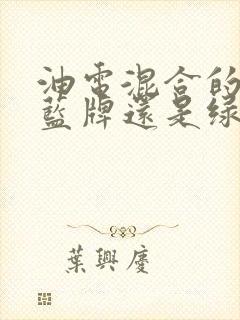 油電混合的
藍牌還是綠
葉興慶